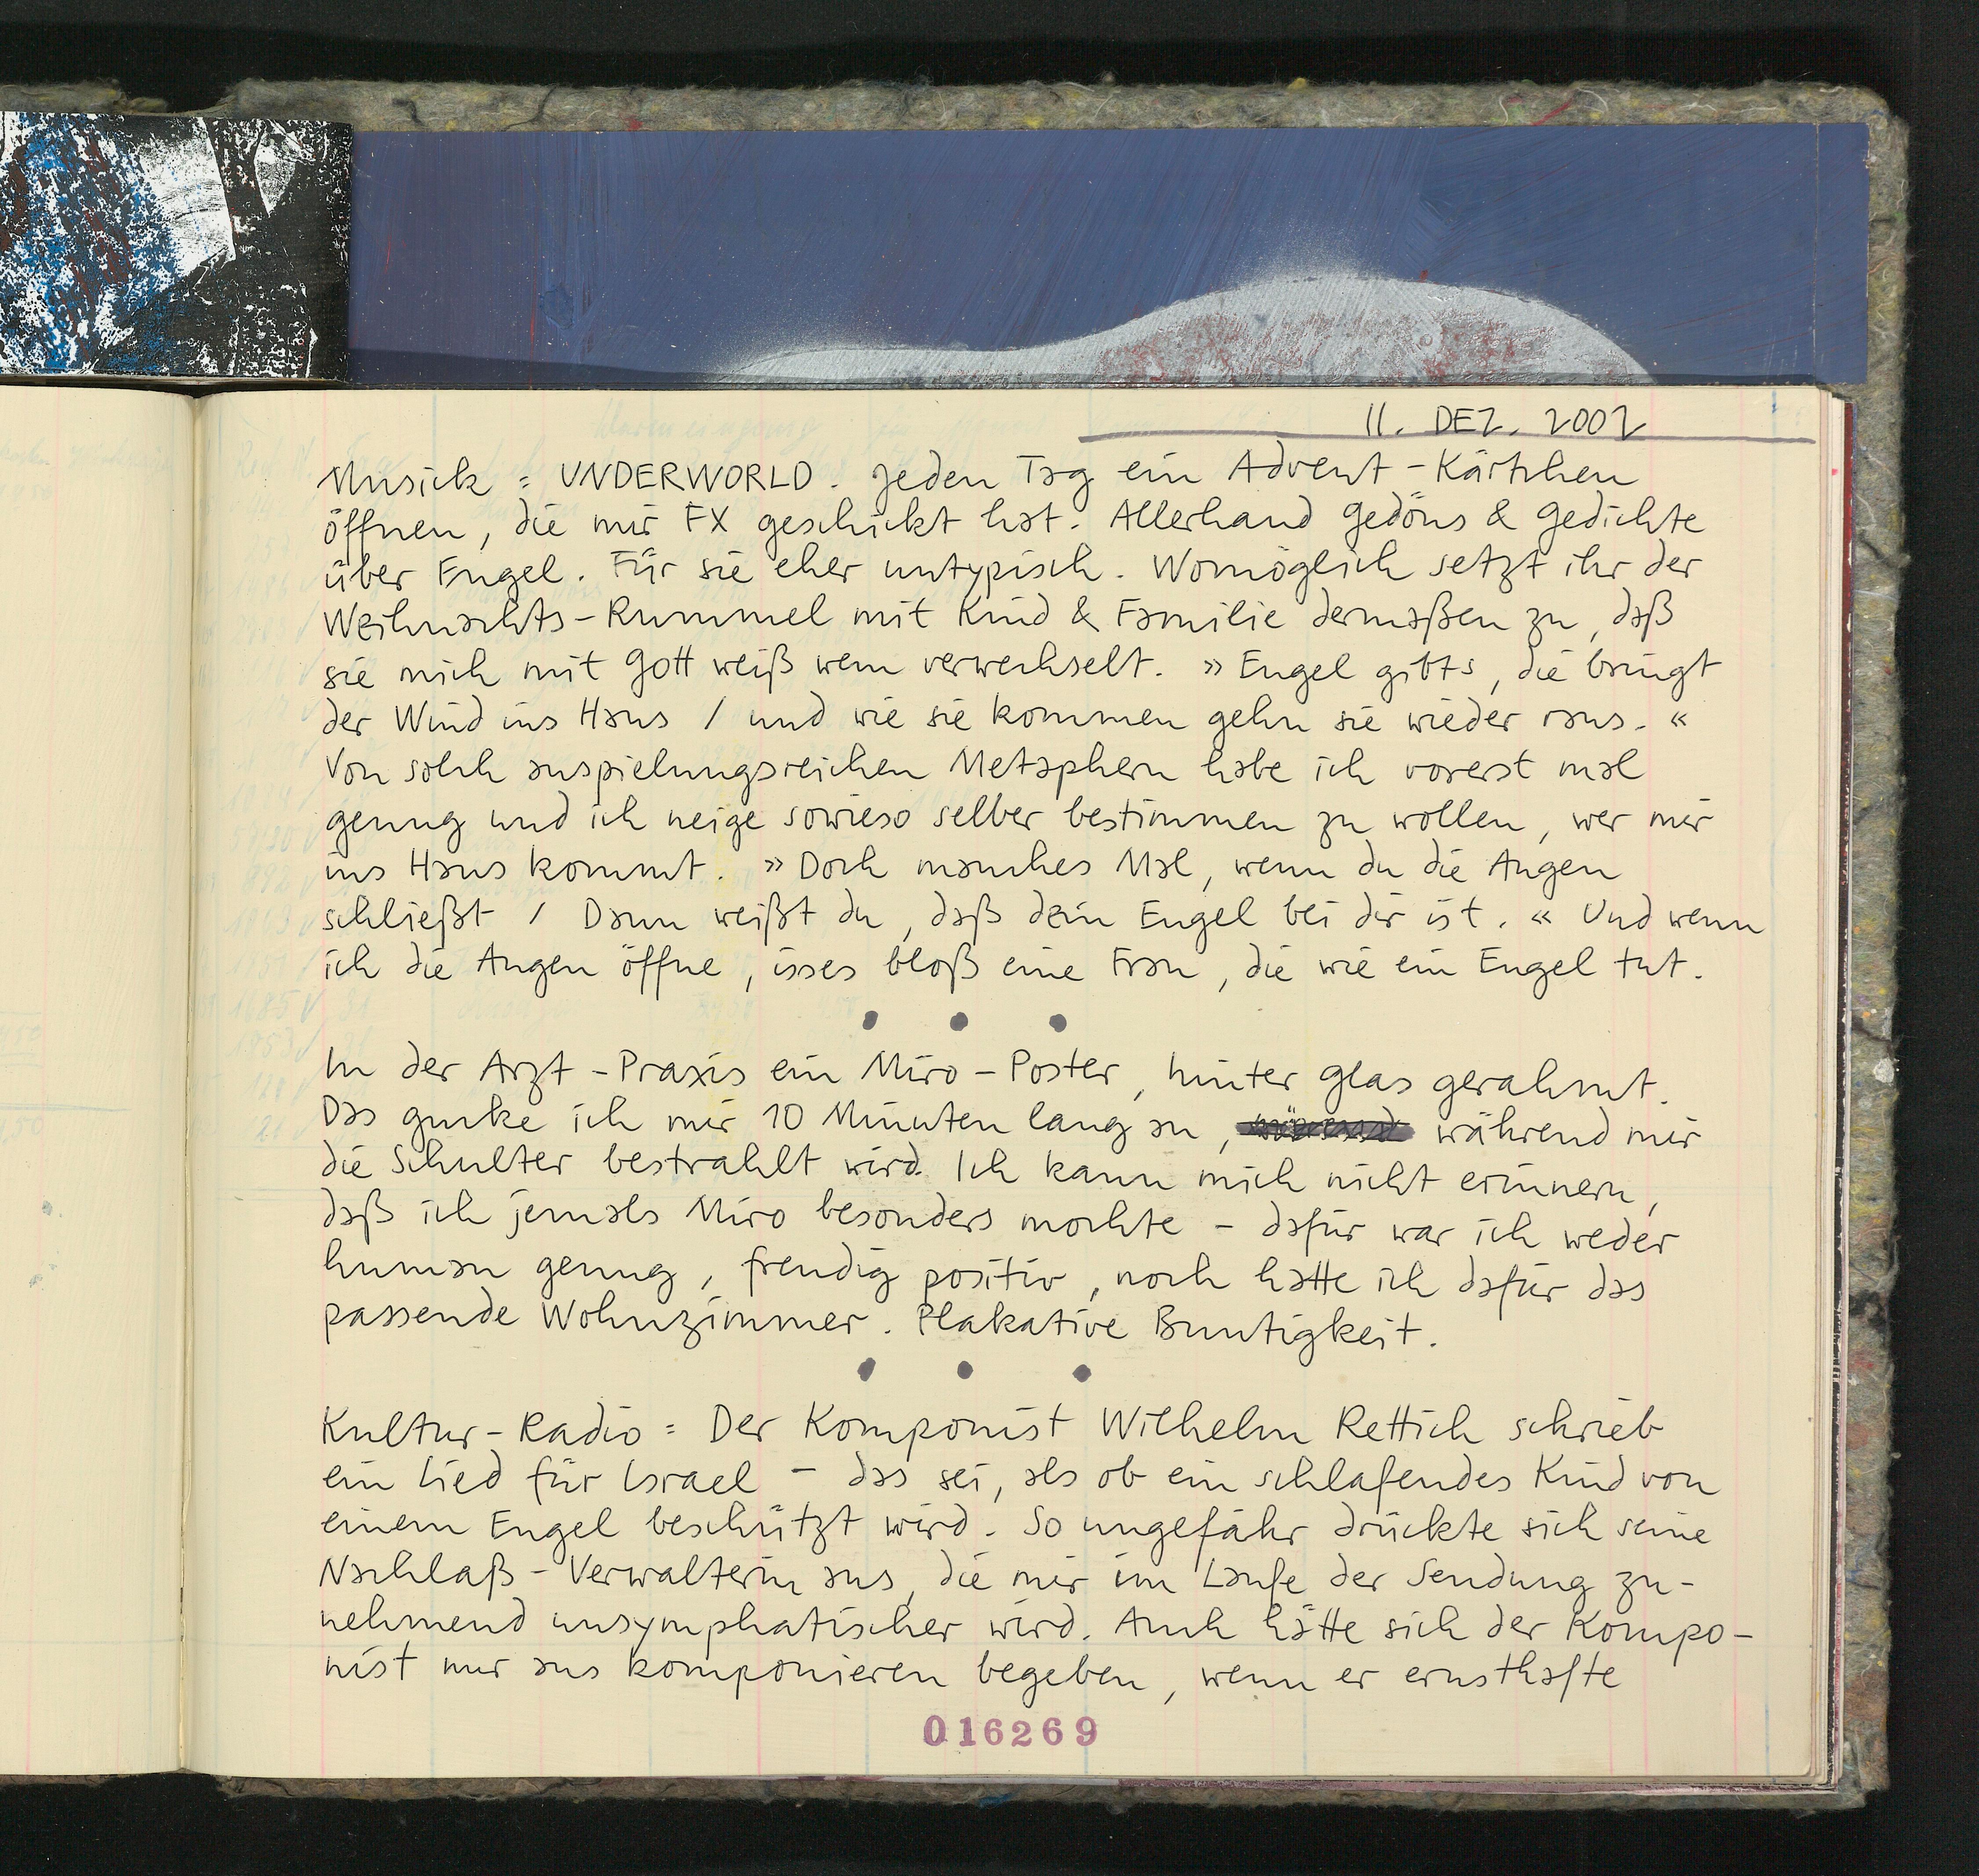 11. DEZ. 2002
Musick = UNDERWORLD. Jeden Tag ein Advent-Kärtchen
öffnen, die mir FX geschickt hat. Allerhand Gedöns & Gedichte
über Engel. Für sie eher untypisch. Womöglich setzt ihr der
Weihnachts-Rummel mit Kind & Familie dermaßen zu, daß
sie mich mit Gott weiß wem verwechselt. »Engel gibts, die bringt
der Wind ins Haus / und wie sie kommen gehn sie wieder raus.«
Von solch anspielungsreichen Metaphern habe ich vorerst mal
genug und ich neige sowieso selber bestimmen zu wollen, wer mir
ins Haus kommt. »Doch manches Mal, wenn du die Augen
schließt / Dann weißt du, daß dein Engel bei dir ist.« Und wenn
ich die Augen öffne, isses bloß eine Frau, die wie ein Engel tut.
• • •
In der Arzt-Praxis ein Miro-Poster, hinter Glas gerahmt.
Das gucke ich mir 10 Minuten lang an, während mir
die Schulter bestrahlt wird. Ich kann mich nicht erinnern,
daß ich jemals Miro besonders mochte – dafür war ich weder
human genug, freudig positiv, noch hatte ich dafür das
passende Wohnzimmer. Plakative Buntigkeit.
• • •
Kultur-Radio = Der Komponist Wilhelm Rettich schrieb
ein Lied für Israel – das sei, als ob ein schlafendes Kind von
einem Engel beschützt wird. So ungefähr drückte sich seine
Nachlaß-Verwalterin aus, die mir im Laufe der Sendung zu-
nehmend unsymphatischer wird. Auch hätte sich der Kompo-
nist nur ans komponieren begeben, wenn er ernsthafte
016269